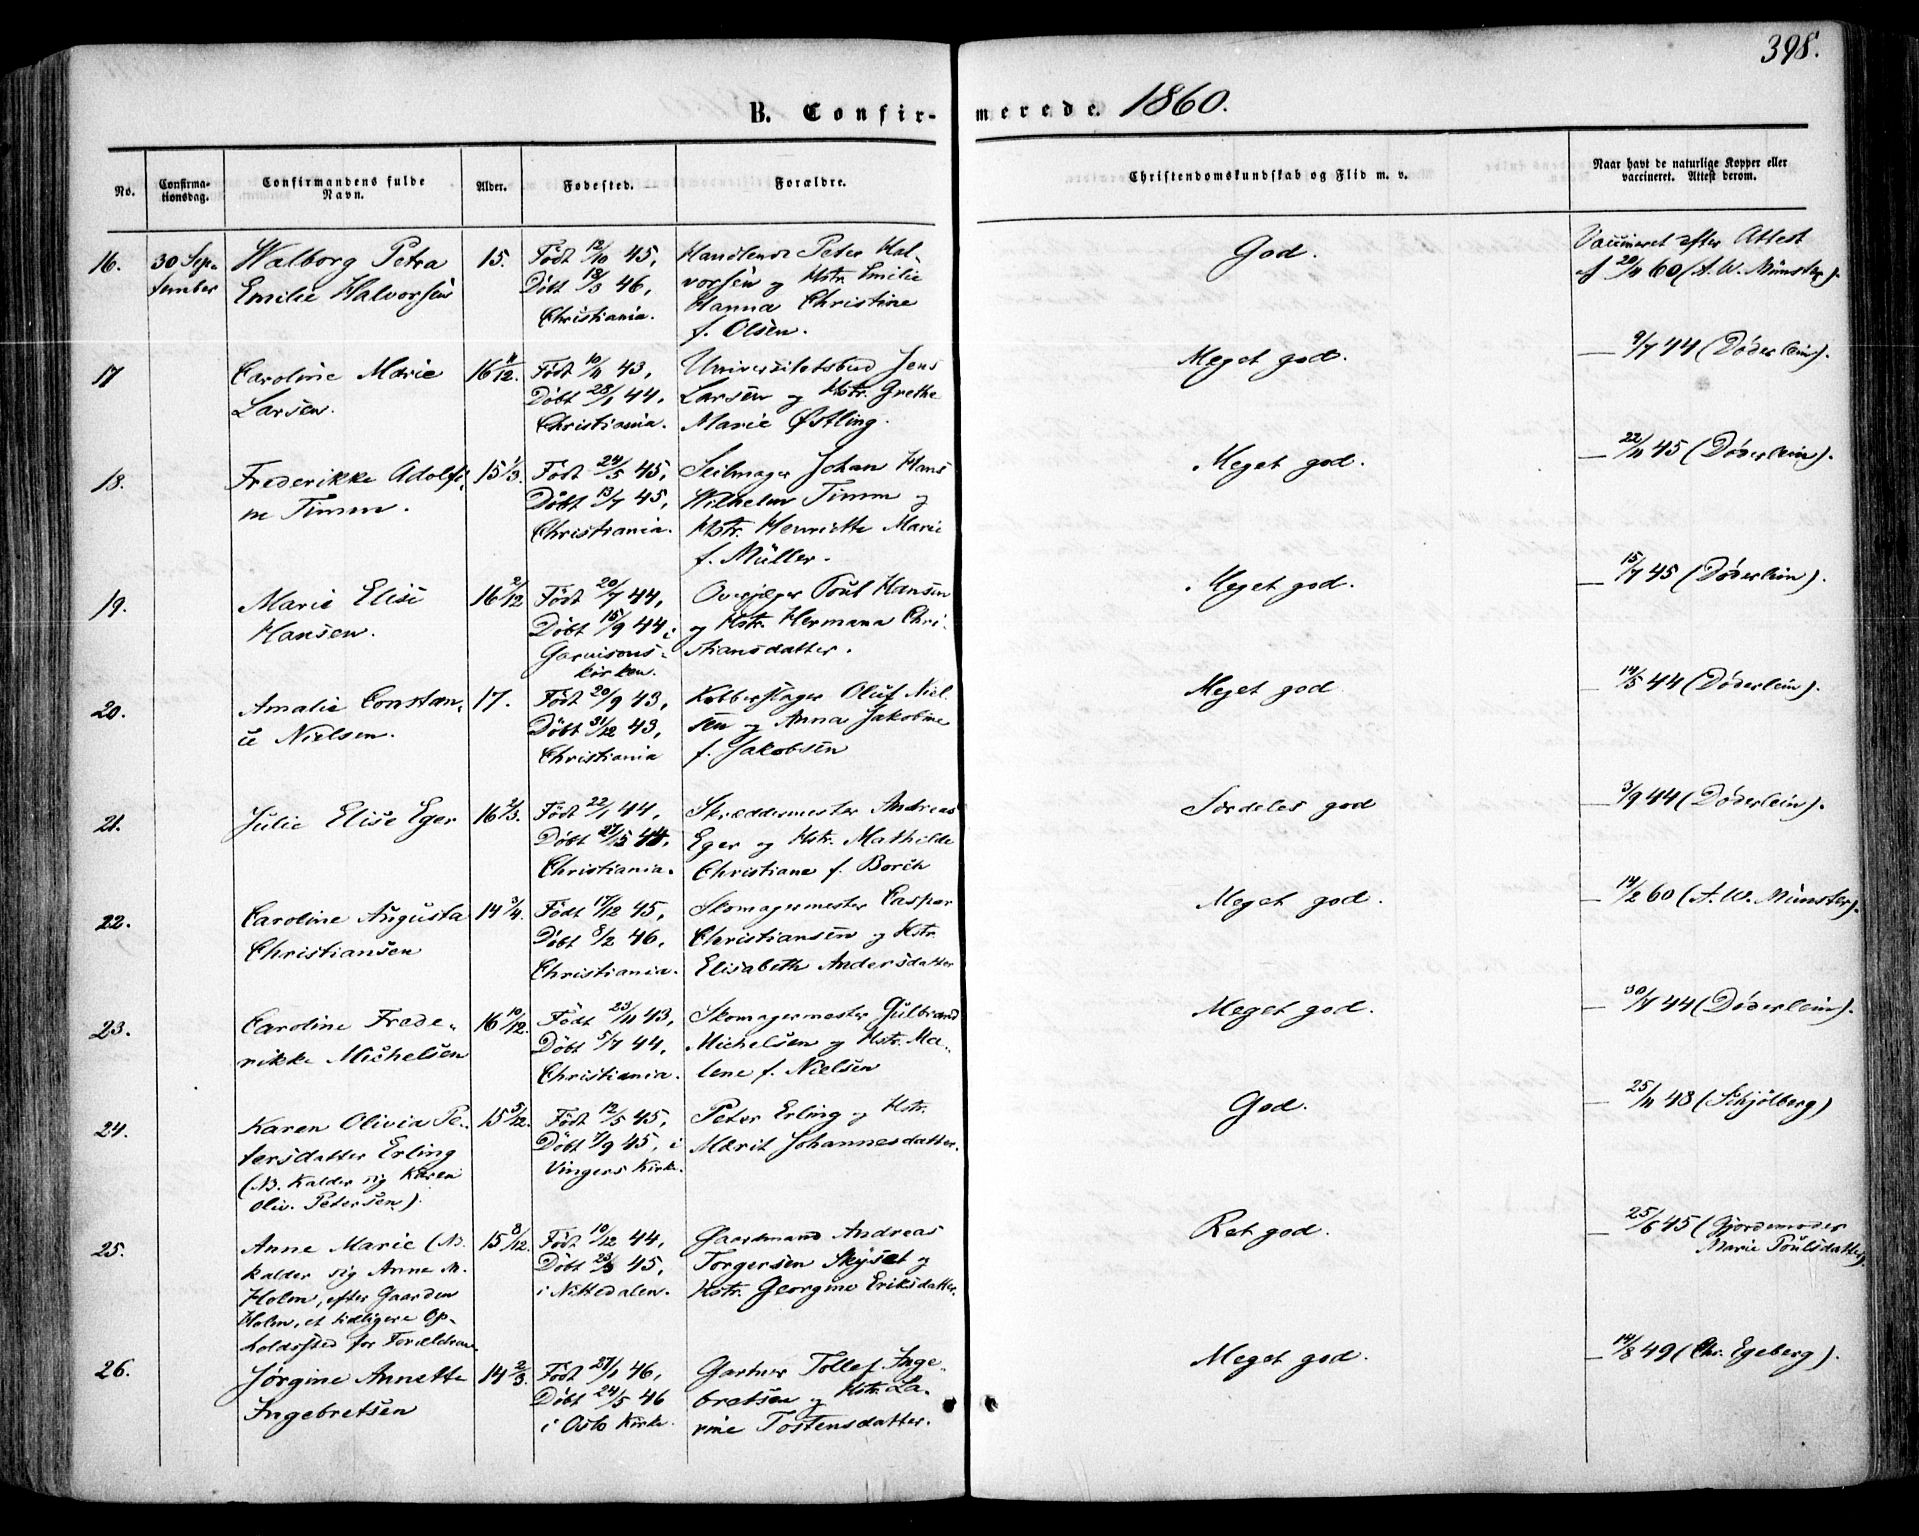 398.
B. Confir- merede. 1860.
No.
Confirma-
tionsdag.
Confirmandens fulde
Navn.
Alder.
Fødested.
Forældre.
Christendomskundskab og Flid m. v.
Naar havt de naturlige Kopper eller
vaccineret. Attest derom.
16.
30 Sep-
tember
Walborg Petra
Emilie Halvorsen
15.
Født 12/10 45,
Døbt 18/3 46,
Christiania.
Handlende Peter Hal-
vorsen og Hstr. Emilie
Hanna Christine
f. Olsen.
God.
Vaccineret efter Attest
af 20/4 60 (A. W. Münster).
17
Caroline Marie
Larsen.
16 11/12.
Født 10/11 43,
Døbt 28/1 44,
Christiania.
Universitetsbud Jens
Larsen og Hstr. Grethe
Marie Østling.
Meget god.
— 9/7 44 (Døderlein).
18.
Frederikke Adolfi-
ne Timm.
15 1/3.
Født 24/5 45,
Døbt 13/7 45,
Christiania.
Seilmager Johan Hans
Wilhelm Timm og
Hstr. Henriette Marie
f. Müller.
Meget god.
— 22/11 45 (Døderlein).
19.
Marie Elise
Hansen.
16 2/12
Født 20/7 44,
Døbt 15/9 44 i
Garnisons-
kirken.
Overjæger Poul Hansen
og Hstr. Hermana Chri-
stiansdatter.
Meget god.
— 15/7 45 (Døderlein).
20.
Amalie Constan-
ce Nielsen.
17.
Født 20/9 43,
Døbt 31/12 43,
Christiania
Kobberslager Oluf Niel-
sen og Anna Jakobine
f. Jakobsen
Meget god.
— 14/5 44 (Døderlein).
21.
Julie Elise Eger
16 2/3.
Født 22/1 44,
Døbt 27/5 44,
Christiania.
Skræddermester Andreas
Eger og Hstr. Mathilde
Christiane f. Borch
Særdeles god
— 3/9 44 (Døderlein).
22.
Caroline Augusta
Christiansen
14 3/4.
Født 17/12 45,
Døbt 8/2 46,
Christiania.
Skomagermester Caspar
Christiansen og Hstr.
Elisabeth Andersdatter
Meget god.
— 14/2 60 (A. W. Münster).
23.
Caroline Frede-
rikke Michelsen
16 10/12.
Født 23/11 43,
Døbt 5/7 44,
Christiania.
Skomagermester Gulbrand
Michelsen og Hstr. Ma-
lene f. Nielsen
Meget god.
— 30/7 44 (Døderlein).
24.
Karen Olivia Pe-
tersdatter Erling
(NB. kalder sig Karen
Oliv. Petersen).
15 5/12.
Født 12/5 45,
Døbt 7/9 45, i
Vingers Kirke.
Peter Erling og Hstr.
Marit Johannesdatter.
God.
— 25/11 48 (Schjølberg)
25.
Anne Marie (NB.
kalder sig Anne M.
Holm, efter Gaarden
Holm, et tidligere Op-
holdssted for Forældrene
15 8/12.
Født 10/12 44,
Døbt 23/3 45,
i Nittedalen.
Gaardmand Andreas
Torgersen Skyset og
Hstr. Georgine Eriksdatter.
Ret god.
— 25/6 45 (Gjordemoder
Marie Poulsdatter).
26.
Jørgine Annette
Ingebretsen
14 2/3.
Født 27/1 46,
Døbt 24/5 46
i Oslo Kirke.
Gartner Tollef Inge-
bretsen og Hstr. La-
rine Tostensdatter.
Meget god.
— 14/8 49 (Chr. Egeberg).